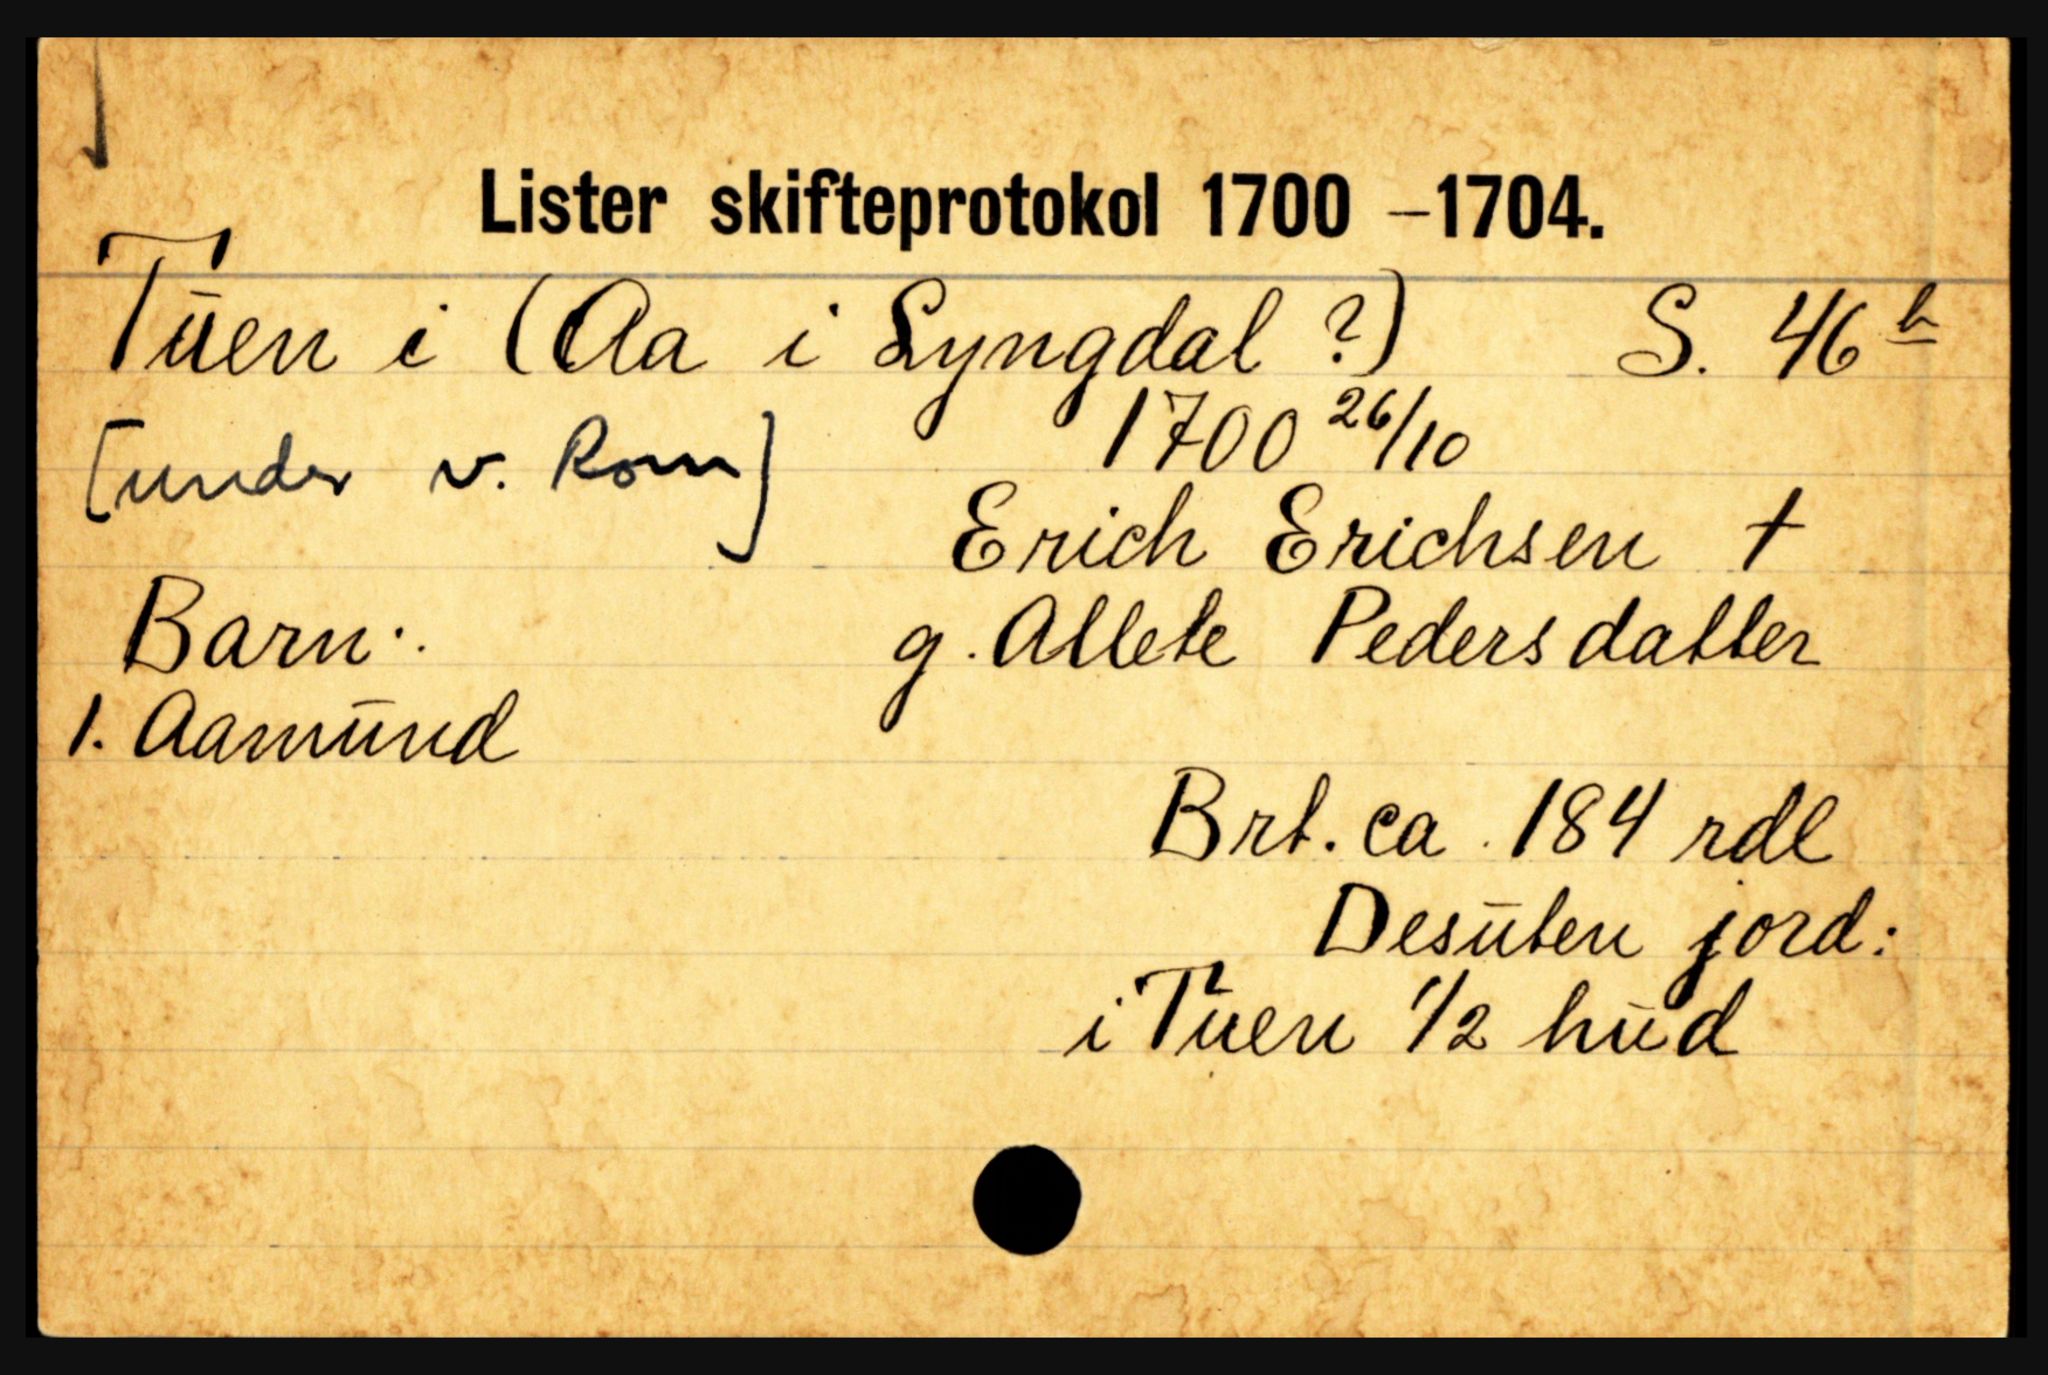 Lister skifteprotokol 1700 –1704.
Tūen i (Aa i Lyngdal ?) S. 46 b
[under v. Rom] 1700 26/10
Erich Erichsen †
Barn: g. Allete Pedersdatter
1. Aamūnd
Brt. ca. 184 rdl
Desūten jord:
i Tuen 1/2 hūd